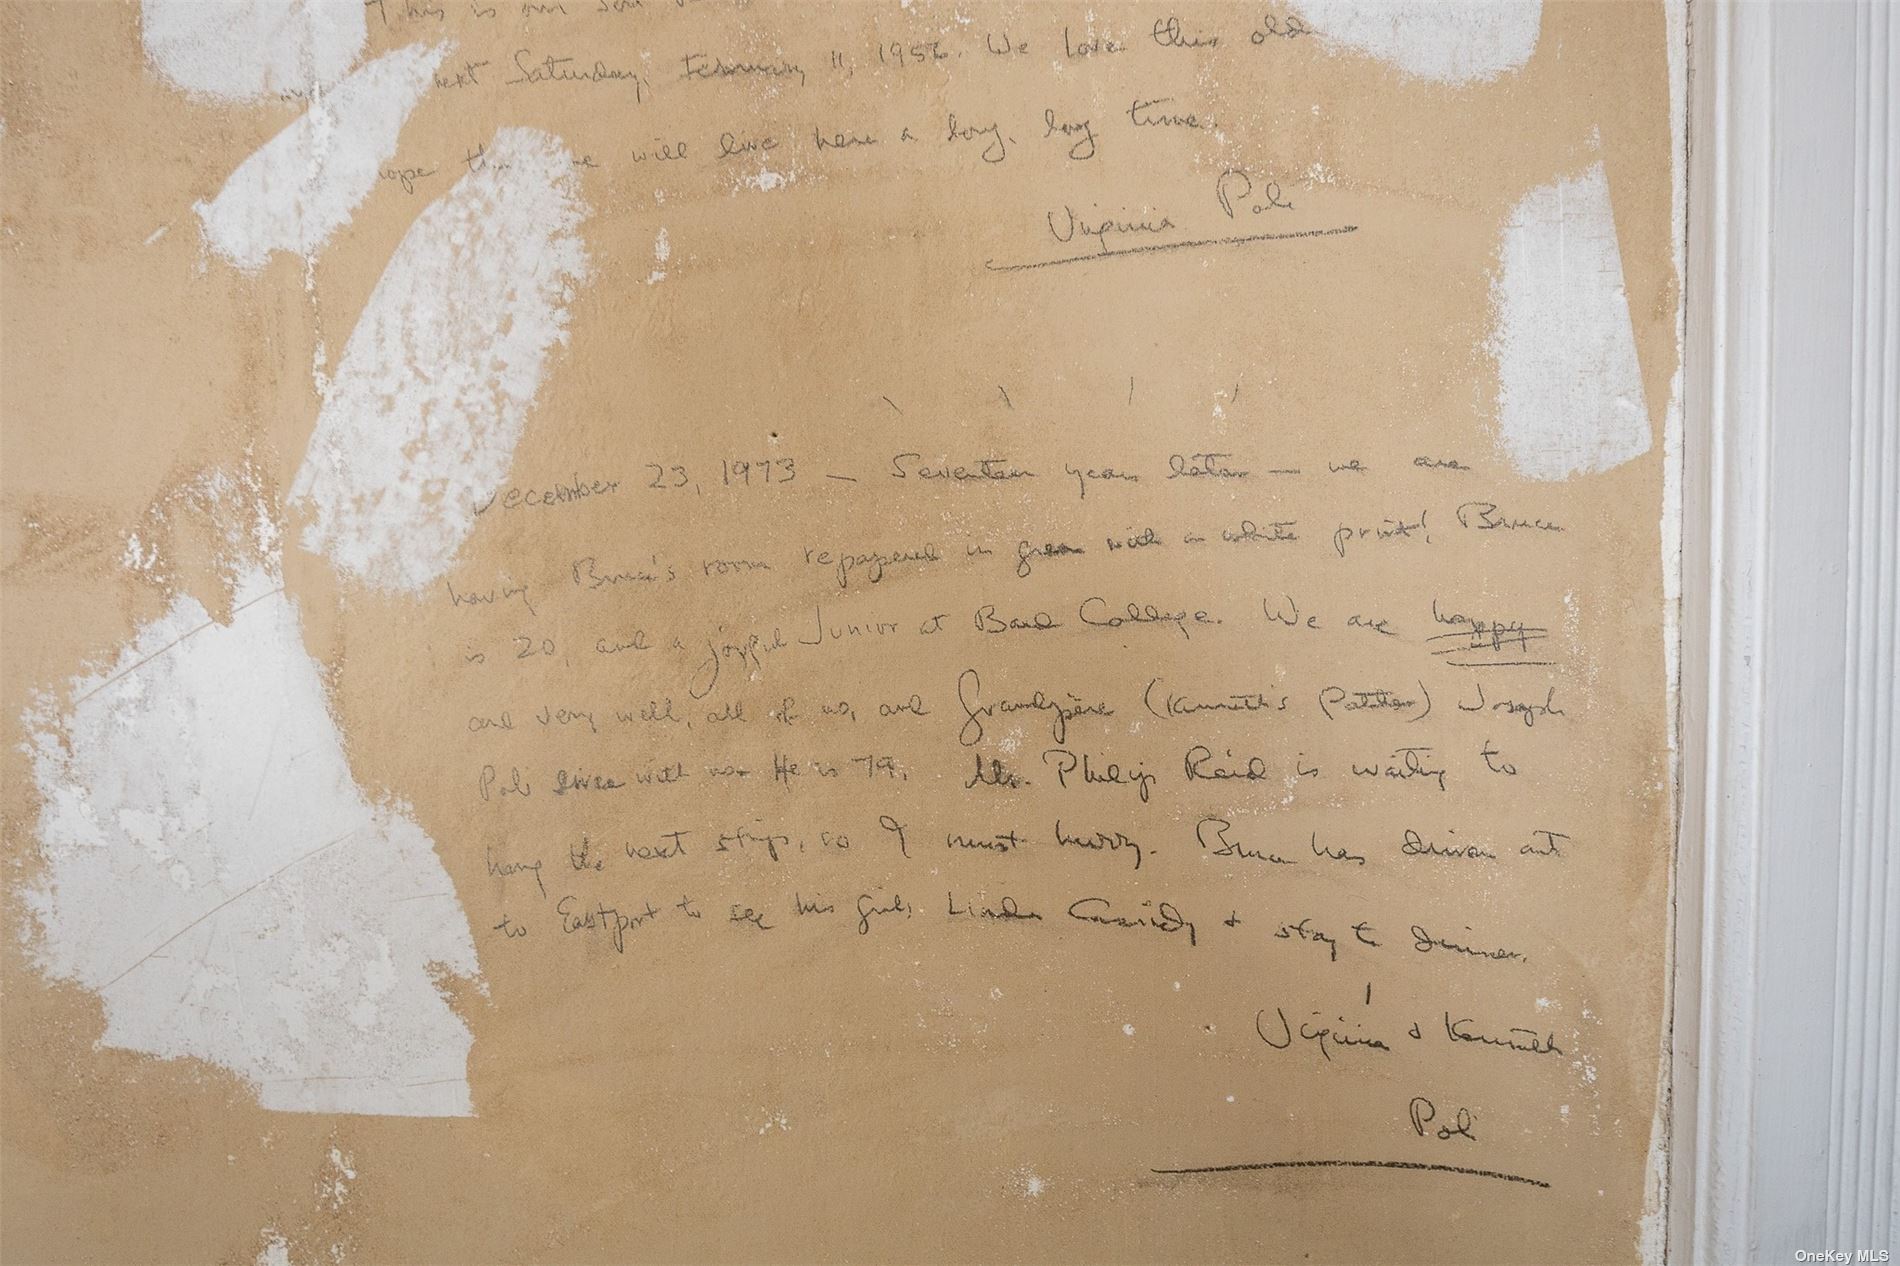 This is our son
next Saturday, February 11, 1956. We love this old
hope we will live here a long, long time.
Virginia Poli
December 23, 1973 — Seventeen years later — we are
having Bruce's room repapered in green with a white print! Bruce
is 20, and a joyful Junior at Bard College. We are happy
and very well, all of us, and Grandpère (Kenneth's Father) Joseph
Poli lives with us. He is 79. Mr. Philip Reid is waiting to
hang the next strip, so I must hurry. Bruce has driven out
to Eastport to see his girl, Linda Cassidy + stay to dinner.
Virginia + Kenneth
Poli
OneKey MLS